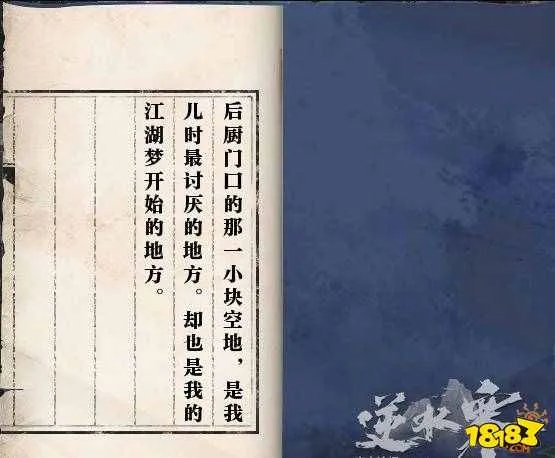 后厨门口的那一小块空地，是我
儿时最讨厌的地方。却也是我的
江湖梦开始的地方。
逆水寒
18183